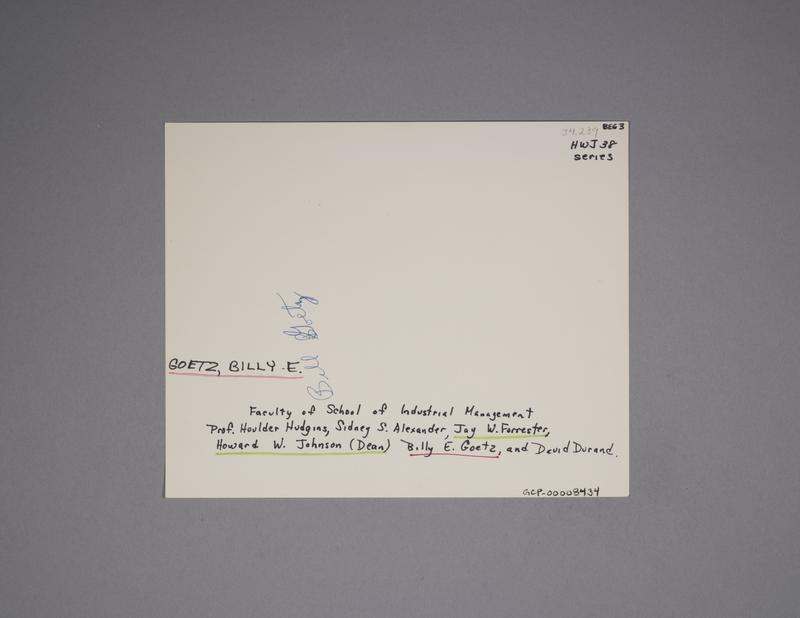 34.239 BEG 3
HWJ 38
series
Bill Goetz
GOETZ, BILLY E.
Faculty of School of Industrial Management
Prof. Houlder Hudgins, Sidney S. Alexander, Jay W. Forrester,
Howard W. Johnson (Dean) Billy E. Goetz, and David Durand.
GCP-00008434